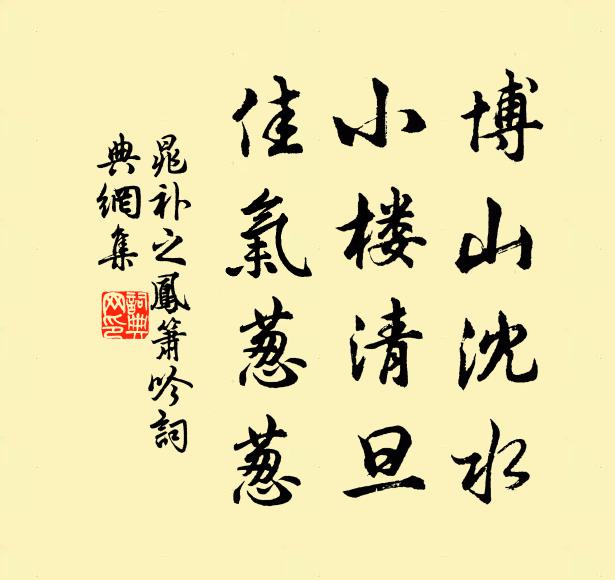 博山沈水
小楼清旦
佳氣葱葱
晁补之鳳箫吟詞
典網集
詞典
网印